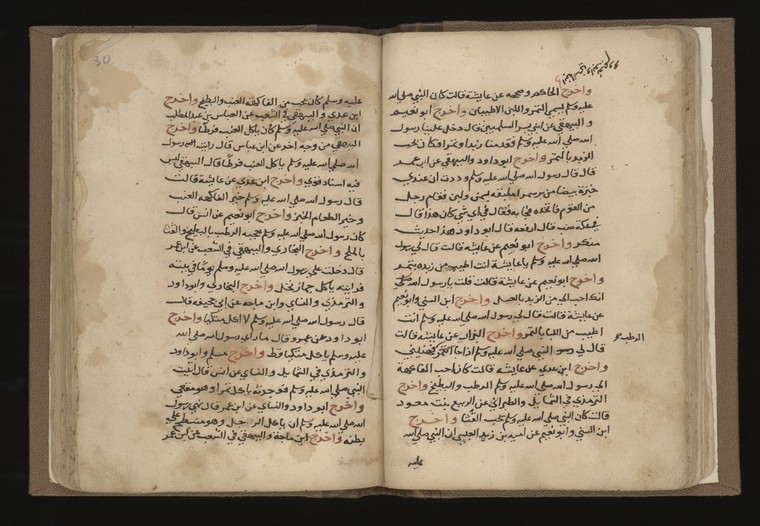 واخرج الحاكم وصححه عن عايشة قالت كان النبي صلى الله
عليه وسلم يسمي التمر واللبن الاطيبان واخرج ابو نعيم
و البيهقي عن ابني بسر السلميين قال دخل علينا رسول
الله صلى الله عليه وسلم فقدمنا زبدا وتمرا فكان يحب
الزبد بالتمر واخرج ابو داود والبيهقي عن ابن عمر
قال قال رسول الله صلى الله عليه وسلم وددت ان عندي
خبزة بيضا من برسمرا ملبقه بسمن ولبن فقام رجل
من القوم فاتخذه فجا به فقال في اي شي كان هذا قال
في عكة ضب قال ارفعه قال ابو داود هذا حديث
منكر واخرج ابو نعيم عن عايشة قالت قال لي رسول
الله صلى الله عليه وسلم يا عايشة انت اطيب من زبد بتمر
واخرج ابو نعيم عن عايشة قالت قلت يا رسول الله صلى
انك احب الي من الزبد بالعسل واخرج ابن السني وابو نعيم
عن عايشة قالت قال لي رسول الله صلى الله عليه وسلم انت
اطيب من اللبا بالتمر واخرج البزار عن عايشة قالت
قال لي رسول النبي صلى الله عليه وسلم اذا جا التمر فهنيني
واخرج ابن عدي عن عايشة قالت كان احب الفاكهة
الى رسول الله صلى الله عليه وسلم الرطب والبطيخ واخرج
الرطب
الترمذي في الشمايل والطبراني عن الربيع بنت معوذ
قالت كان النبي صلى الله عليه وسلم يحب القثا واخرج
ابن السني وابو نعيم عن امية بن زيد العبسي ان النبي صلى الله
عليه
30
عليه وسلم كان يحب من الفاكهة العنب والبطيخ واخرج
ابن عدي والبيهقي في الشعب عن العباس بن عبد المطلب
ان النبي صلى الله عليه وسلم كان ياكل العنب خرطا واخرج
البيهقي من وجه اخر عن ابن عباس قال رايت رسول
الله صلى الله عليه وسلم ياكل العنب خرطا قال البيهقي ليس
فيه اسناد قوي واخرج ابن عدي عن عايشة قالت
قال رسول الله صلى الله عليه وسلم خير الفاكهه العنب
وخير الطعام الخبز واخرج ابو نعيم عن انس قال
كان رسول الله صلى الله عليه وسلم يعجبه الرطب بالبطيخ والقثا
بالملح واخرج البخاري والبيهقي في الشعب عن ابن عمر
قال دخلت على رسول الله صلى الله عليه وسلم يوما في بيته
فرايته ياكل جمار نخل واخرج البخاري وابو داود
والترمذي والنساي وابن ماجه عن ابي جحيفه قال
قال رسول الله صلى الله عليه وسلم لا اكل متكيا واخرج
ابو داود عن عمرو قال ما راي رسول الله صلى الله
عليه وسلم ياكل متكيا قط واخرج مسلم وابو داود
والترمذي في الشمايل والنساي عن انس قال اتيت
النبي صلى الله عليه وسلم فوجدته ياكل تمرا وهو مقعي
واخرج ابو داود والنساي عن ابن عمر قال نهى رسول
الله صلى الله عليه وسلم ان ياكل الرجل وهو منبطح على
بطنه واخرج ابن ماجة والبيهقي في الشعب عن ابن عمر